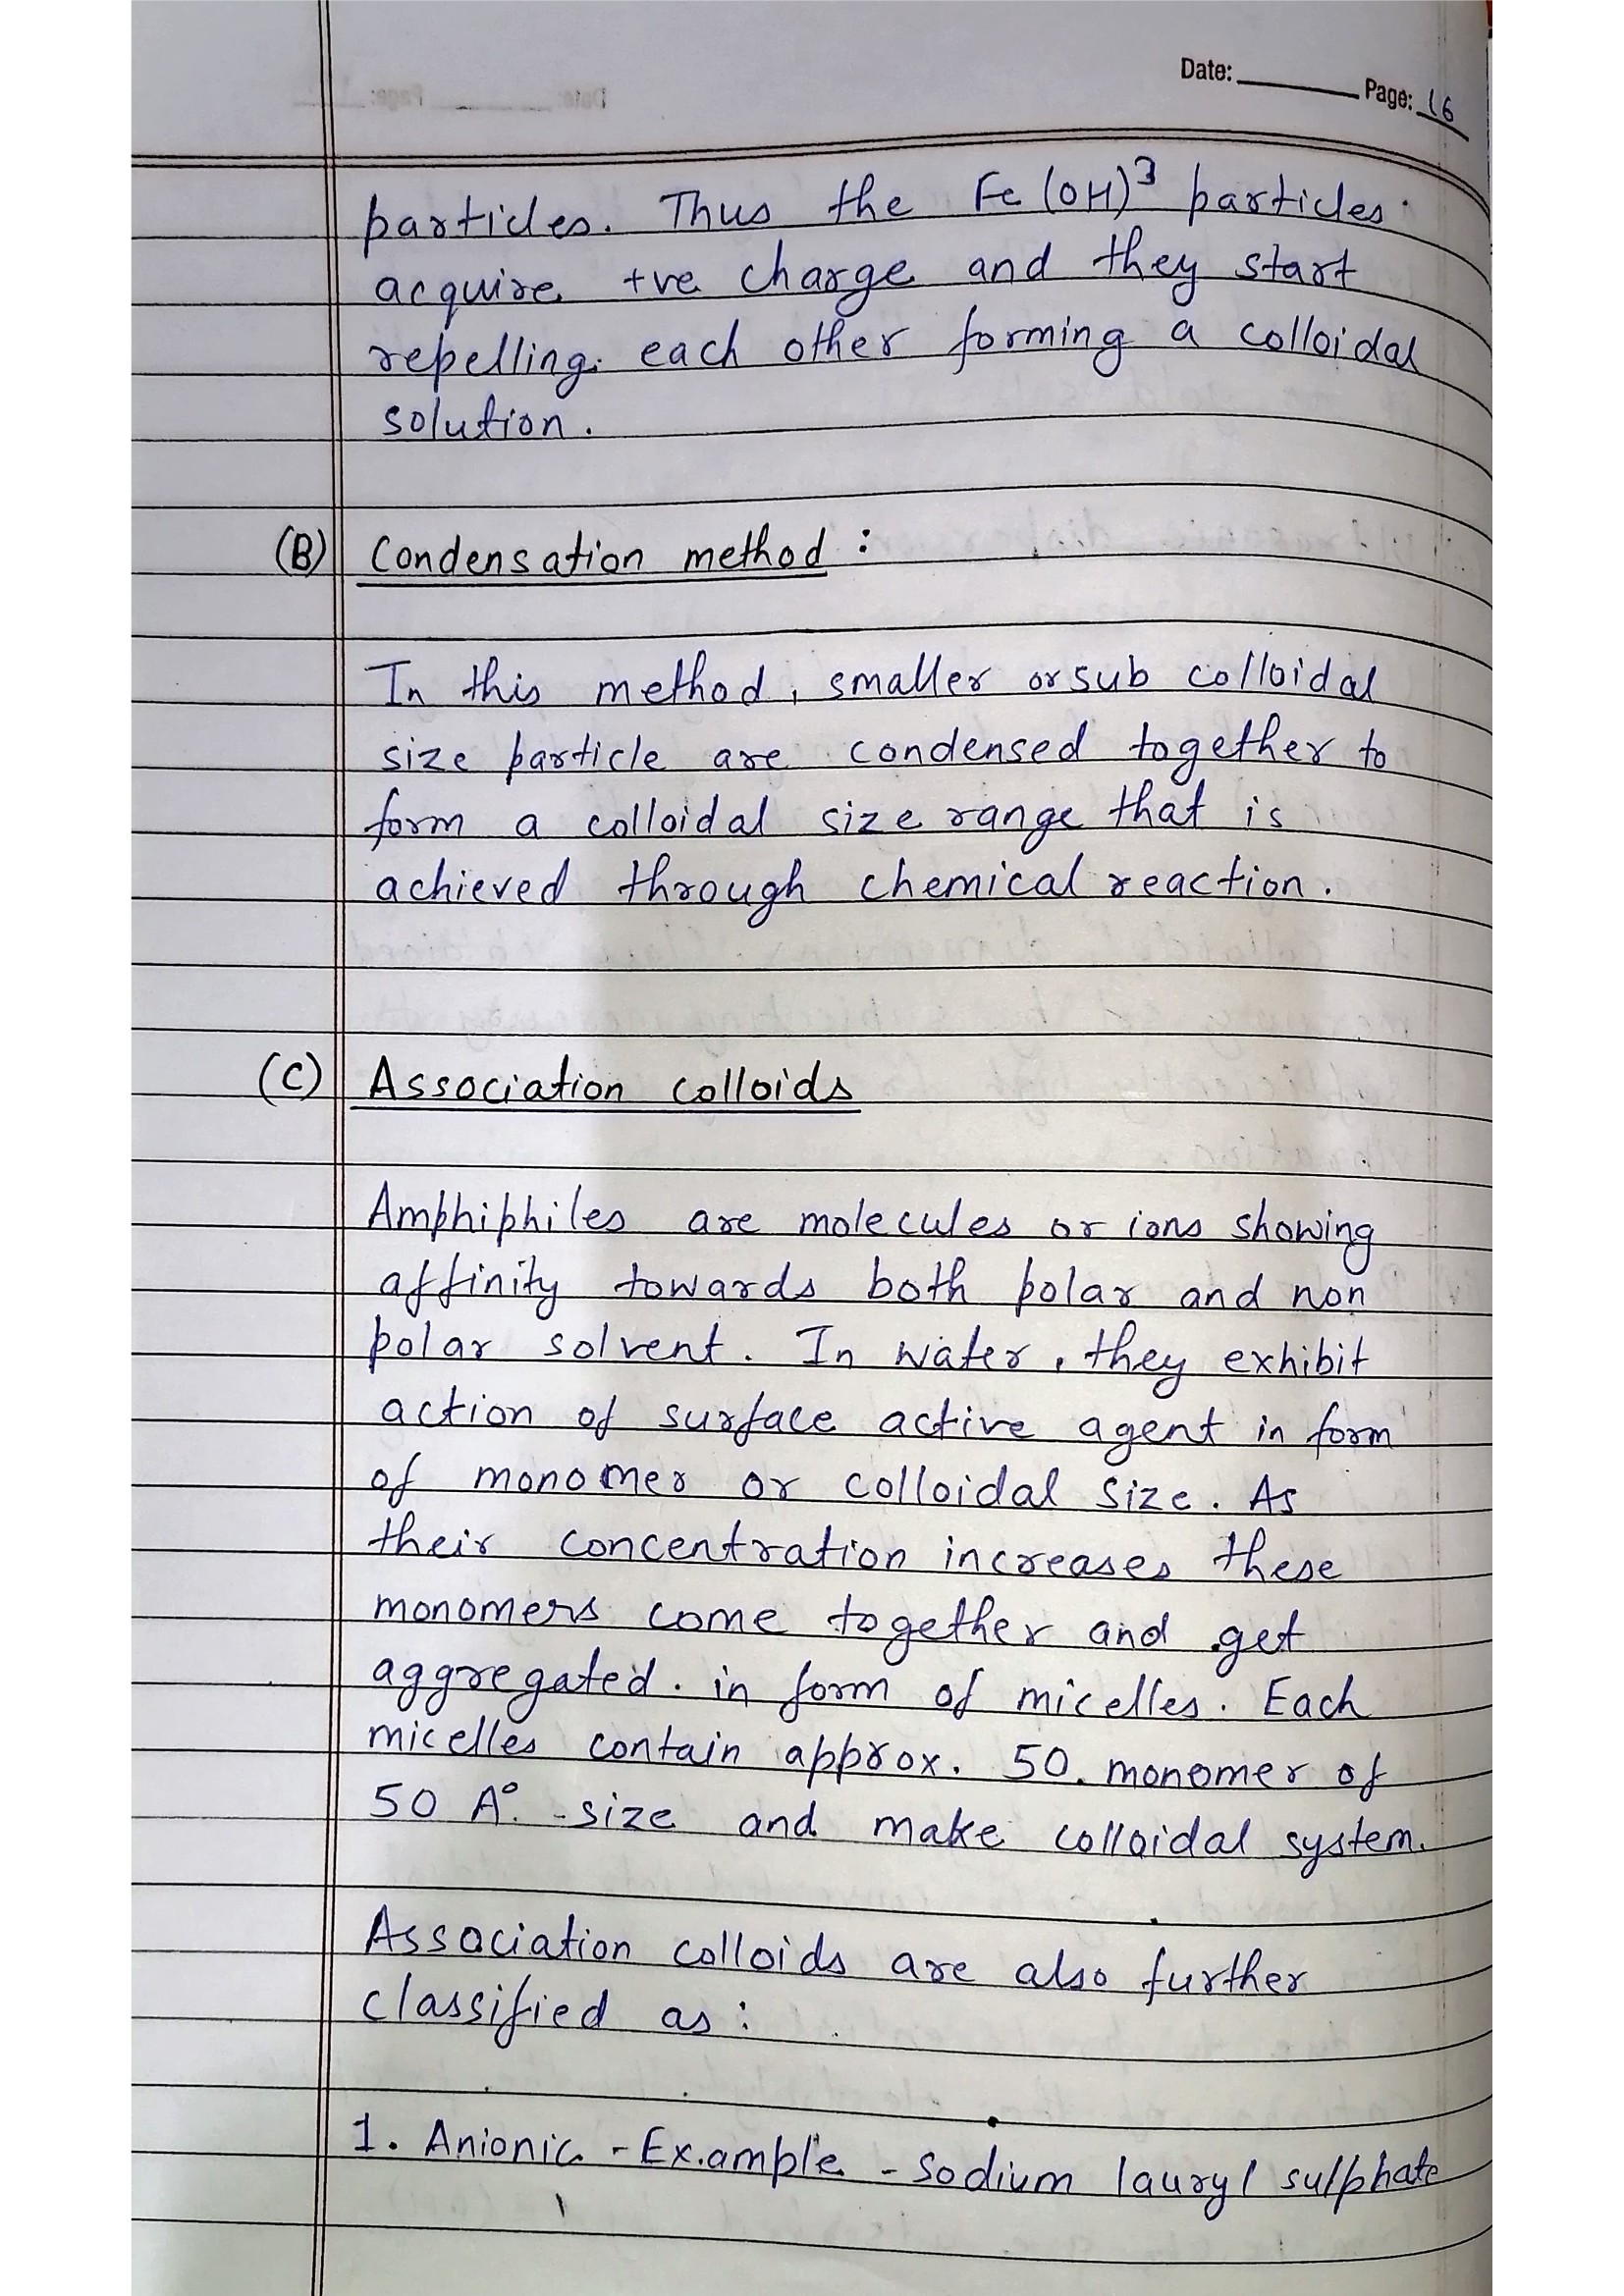 Date: Page: 16
particles. Thus the Fe(OH)³ particles
acquire +ve charge and they start
repelling each other forming a colloidal
solution.
(B) Condensation method :
In this method, smaller or sub colloidal
size particle are condensed together to
form a colloidal size range that is
achieved through chemical reaction.
(C) Association colloids
Amphiphiles are molecules or ions showing
affinity towards both polar and non
polar solvent. In water, they exhibit
action of surface active agent in form
of monomer or colloidal size. As
their concentration increases these
monomers come together and get
aggregated in form of micelles. Each
micelles contain approx. 50 monomer of
50 A° size and make colloidal system.
Association colloids are also further
classified as :
1. Anionic - Example - Sodium lauryl sulphate